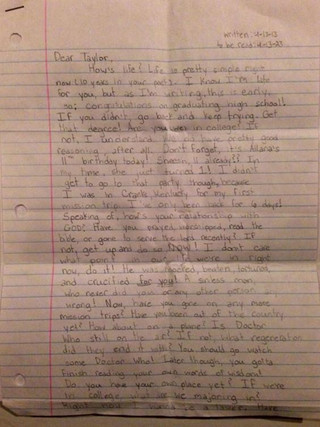 written: 4-13-13
to be read: 4-13-23
Dear Taylor,
How's life? Life is pretty simple right
now (10 years in your past). I know I'm late
for you, but as I'm writing, this is early,
so; congratulations on graduating high school!
If you didn't, go back and keep trying. Get
that degree! Are you in college? If
not, I understand. You have pretty good
reasoning, after all. Don't forget, it's
11th birthday today! Sheesh, 11 already?! In
my time, she just turned 1! I didn't
get to go to that party though, because
I was in Kentucky, for my first
mission trip. I've only been back for 6 days!
Speaking of, how's your relationship with
GOD? Have you prayed, worshipped, read the
bible, or gone to serve the lord recently? If
not, get up and do so NOW! I don't care
what point in our life we're in right
now, do it! He was mocked, beaten, tortured,
and crucified for you! A sinless man
who never did you or any other person
wrong! Now, have you gone on any more
mission trips? Have you been out of the country
yet? How about on a plane? Is Doctor
Who still on the air? If not what regeneration
did they end it with? You should go watch
some Doctor Who! Later though, you gotta
finish reading your own words of wisdom!
Do you have your own place yet? If we're
in college, what are we majoring in?
Right now, is a lawyer. Here